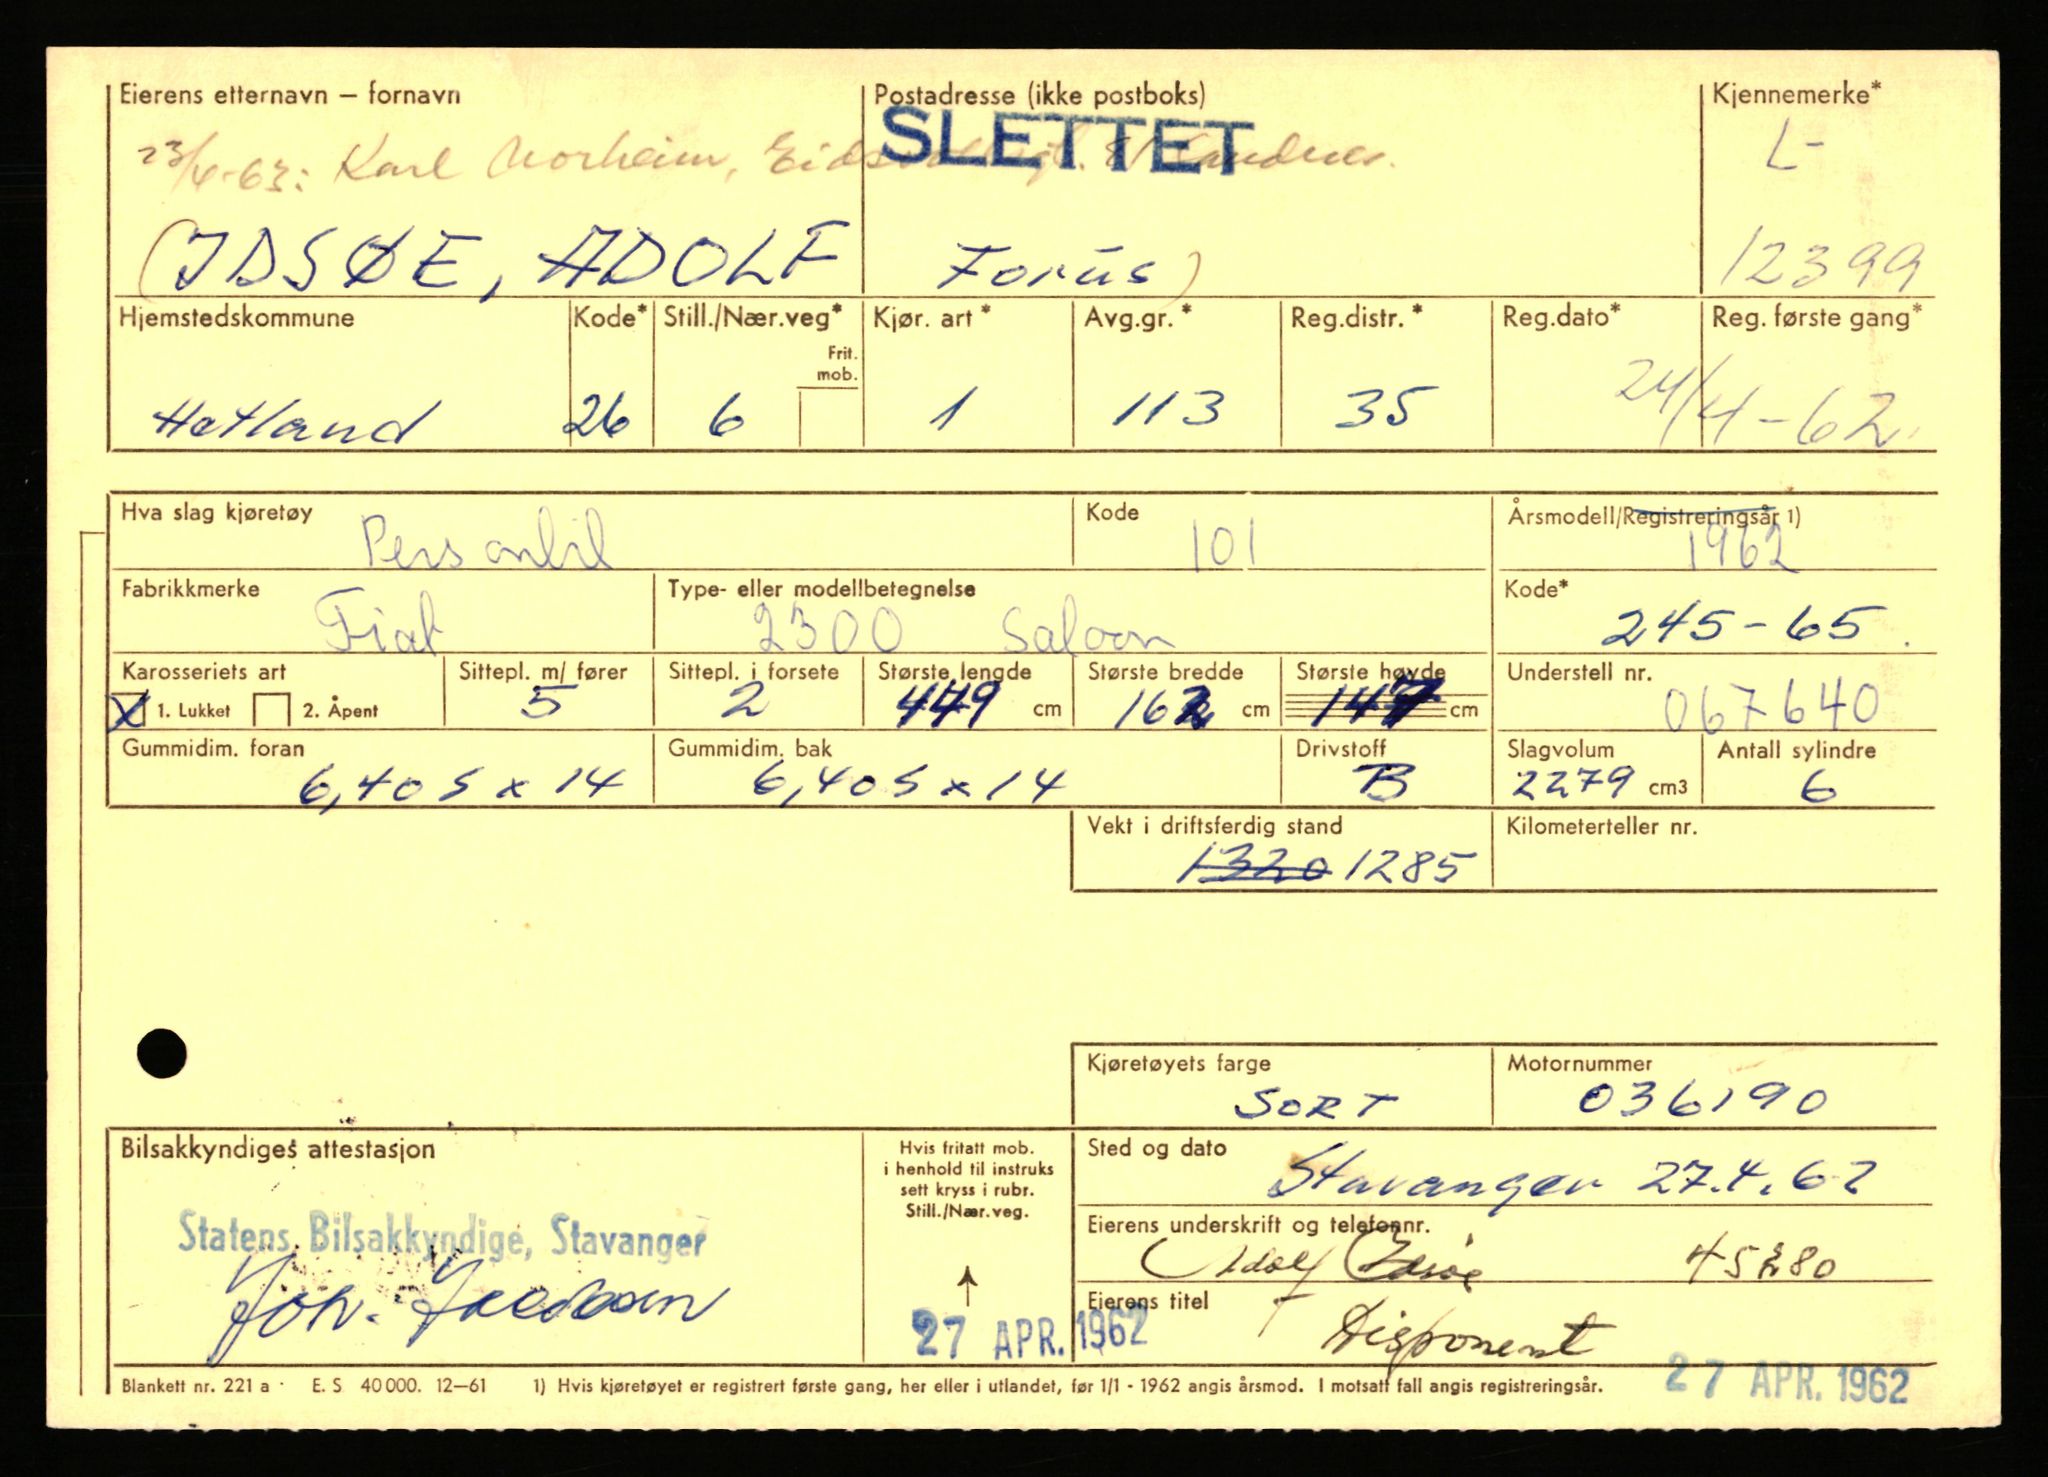 Eierens etternavn – fornavn Postadresse (ikke postboks) Kjennemerke*
SLETTET
23/4-63: Karl Norheim, Sandnes. L-
(IDSØE, ADOLF Forus) 12399
Hjemstedskommune Kode* Still./Nær.veg* Kjør. art* Avg.gr.* Reg.distr.* Reg.dato* Reg. første gang*
Frit. mob.
Hetland 26 6 1 113 35 24/4-62.
Hva slag kjøretøy Kode Årsmodell/Registreringsår 1)
Personbil 101 1962
Fabrikkmerke Type- eller modellbetegnelse Kode*
Fiat 2300 Saloon 245-65.
Karosseriets art Sittepl. m/ fører Sittepl. i forsete Største lengde Største bredde Største høyde Understell nr.
X 1. Lukket 2. Åpent 5 2 449 cm 162 cm 147 cm 067640
Gummidim. foran Gummidim. bak Drivstoff Slagvolum Antall sylindre
6,40 S x 14 6,40 S x 14 B 2279 cm3 6
Vekt i driftsferdig stand Kilometerteller nr.
1320 1285
Kjøretøyets farge Motornummer
SORT 036190
Bilsakkyndiges attestasjon Hvis fritatt mob. i henhold til instruks sett kryss i rubr. Still./Nær.veg. Sted og dato
Stavanger 27.4.62
Statens Bilsakkyndige, Stavanger
Eierens underskrift og telefonnr.
Adolf Idsøe
Joh. Jacobsen
Eierens titel
27 APR. 1962 Disponent
Blankett nr. 221 a E. S 40 000. 12–61 1) Hvis kjøretøyet er registrert første gang, her eller i utlandet, før 1/1 - 1962 angis årsmod. I motsatt fall angis registreringsår. 27 APR. 1962